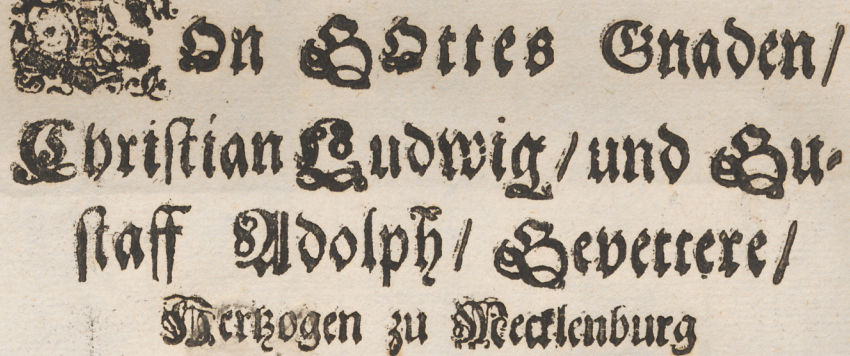 VOn GOttes Gnaden/
Christian Ludwig/ und Gu-
staff Adolph/ Gevettere/
Hertzogen zu Mecklenburg